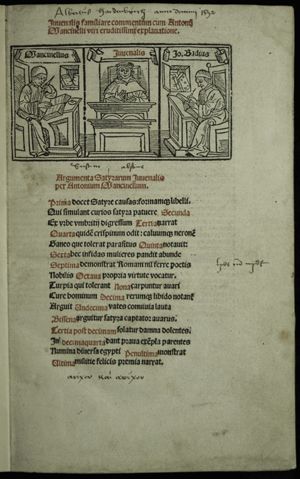 Iuuenalis familiare commentum cum Antonij
Mancinelli viri eruditissimi explanatione.
Mancinellus Iuuenalis Jo. Badius
Argumenta Satyrarum Iuuenalis
per Antonium Mancinellum.
Prima docet Satyrae causas: formamque libelli.
Qui simulant curios satyra patuere Secunda
Ex vrbe vmbritij digressum Tertia narrat
Quarta quidem crispinum odit: caluumque neronem
Ganeo que tolerat parasitus Quinta notauit:
Sexta dec infidas mulieres pandit abunde
Septima demonstrat Romam nil ferre poetis
Nobilis Octaua propria virtute vocatur.
Turpia qui tolerant Nona carpuntur auari
Cure dominum Decima rerumque libido notantur
Arguit Undecima vates conuiuia lauta
Bissena arguitur satyra captator auarus.
Tertia post decimam solatur damna dolentes.
In decimaquarta dant praua exempla parentes
Numina diuersa egypti Penultima monstrat
Ultima militie felicis premia narrat.